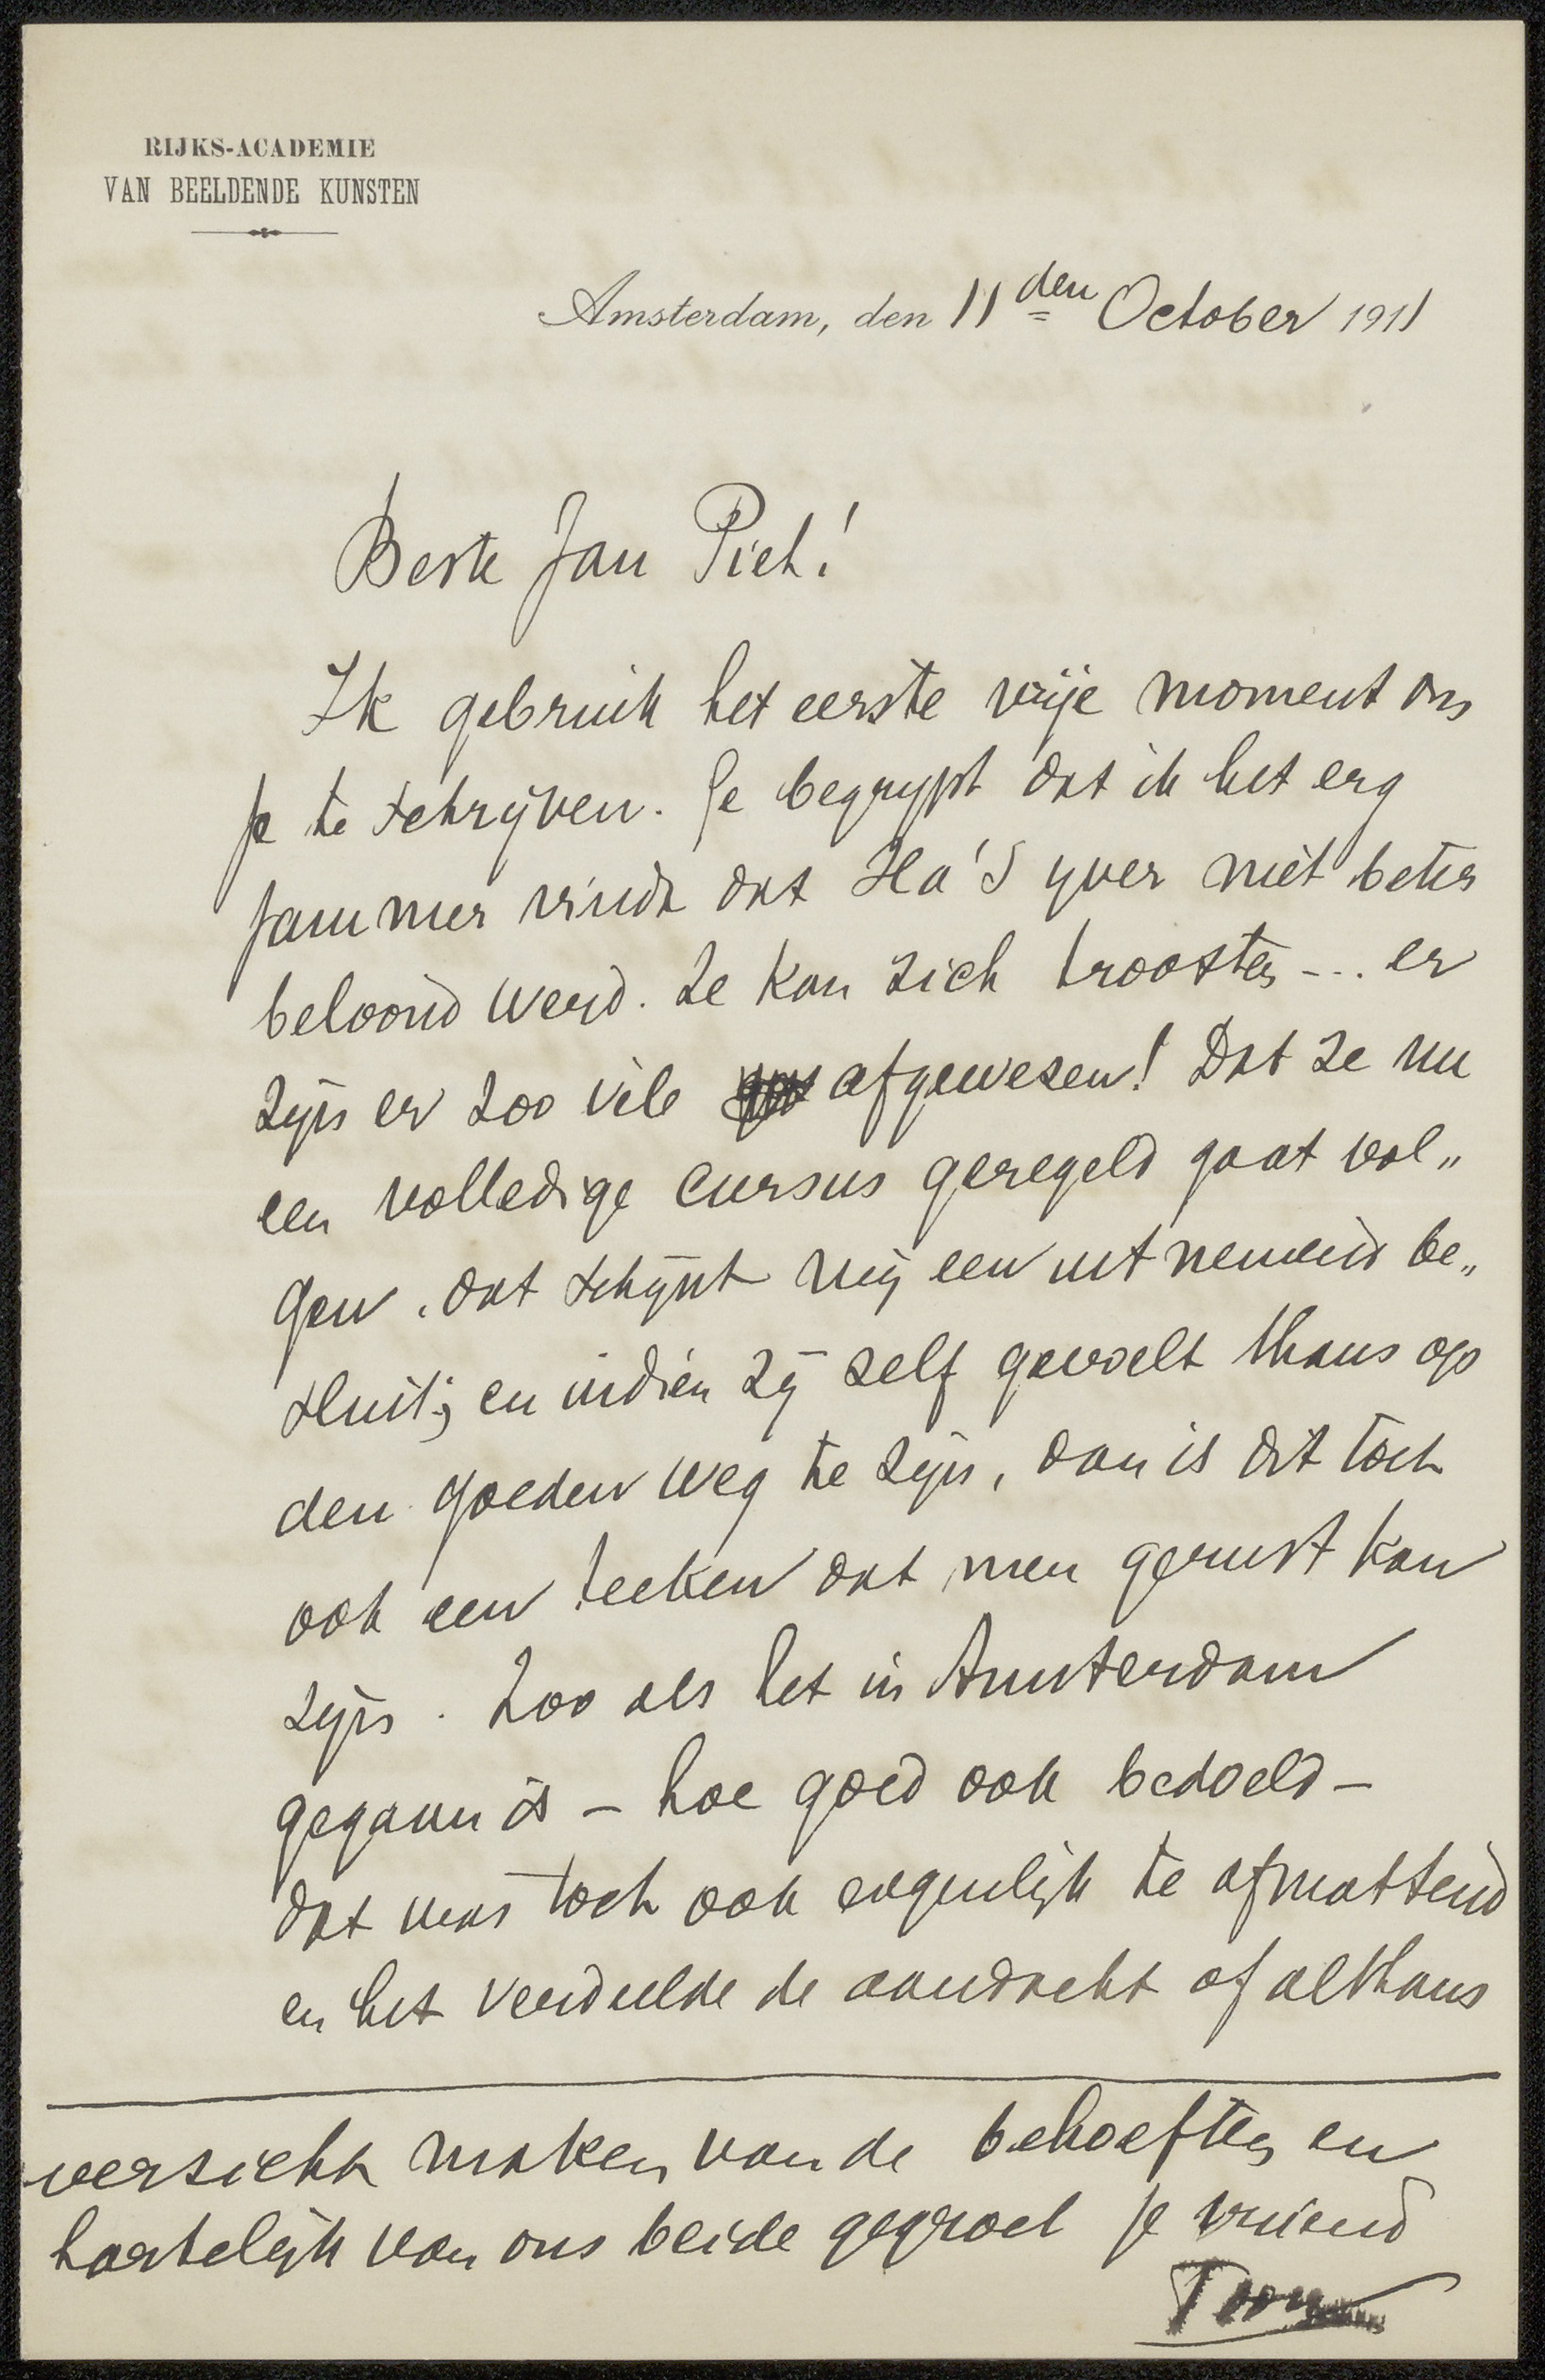 RIJKS-ACADEMIE
VAN BEELDENDE KUNSTEN
Amsterdam, den 11den October 1911
Beste Jan Piet!
Ik gebruik het eerste vrije moment om
je te schrijven. Je begrypt dat ik het erg
jammer vindt dat Ha's yver niet beter
beloond werd. Ze kan zich troosten --- er
zijn er zoo vele afgewezen! Dat ze nu
een volledige cursus geregeld gaat vol„
gen, dat schijnt mij een uitnemend be„
sluit; en indien zij zelf gevoelt thans op
den goeden weg te zijn, dan is dit toch
ook een teeken dat men gerust kan
zijn. Zoo als het in Amsterdam
gegaan is – hoe goed ook bedoeld –
dat was toch ook eigenlijk te afmattend
en het verdeelde de aandacht of althans
verzicht maken van de behoeften en
hartelijk van ons beide gegroet je vriend
Toon